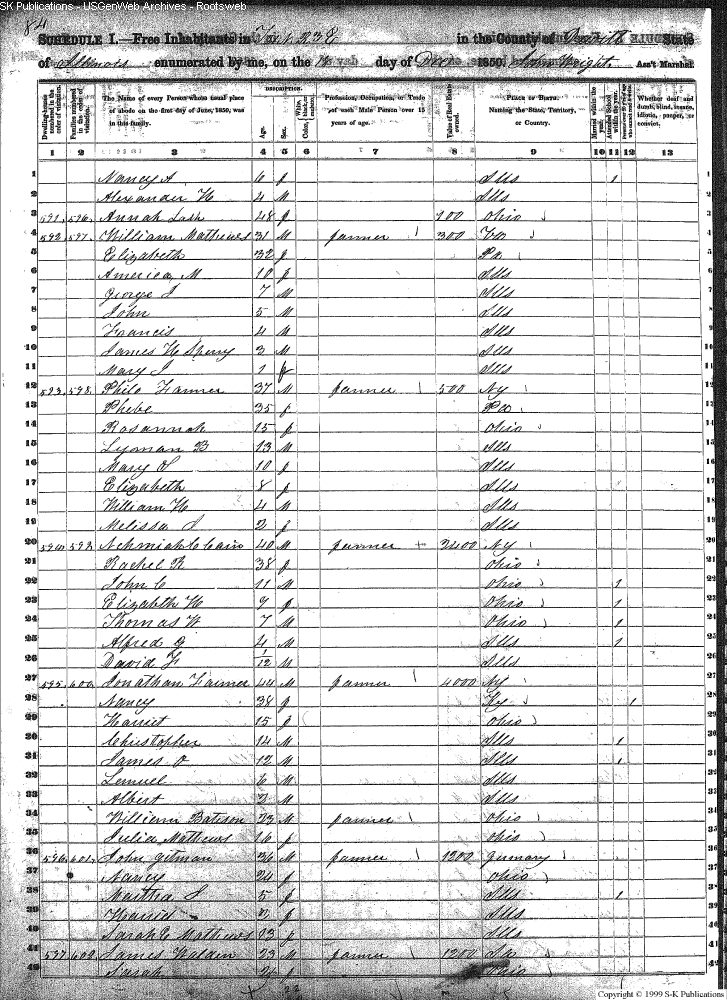 SK Publications - USGenWeb Archives - Rootsweb
84
SCHEDULE I.—Free Inhabitants in in the County of State
of Illinois enumerated by me, on the day of 1850. John Wright Ass't Marshal.
DESCRIPTION.
Dwelling-houses numbered in the order of visitation.
Families numbered in the order of visitation.
The Name of every Person whose usual place of abode on the first day of June, 1850, was in this family.
Age.
Sex.
Color, White, black, or mulatto.
Profession, Occupation, or Trade of each Male Person over 15 years of age.
Value of Real Estate owned.
PLACE OF BIRTH. Naming the State, Territory, or Country.
Married within the year.
Attended School within the year.
Whether deaf and dumb, blind, insane, idiotic, pauper, or convict.
1 2 3 4 5 6 7 8 9 10 11 12 13
1 Nancy A 6 f Ills 1
2 Alexander H 4 M Ills
3 591 596 Annah Lash 48 f Ohio
4 592 597 William Mathews 31 M farmer 300 Va
5 Elizabeth 32 f Pa
6 America M 10 f Ills
7 George J 7 M Ills
8 John 5 M Ills
9 Francis 4 M Ills
10 James H Sperry 3 M Ills
11 Mary J 1 f Ills
12 593 598 Philo Farmer 37 M farmer 500 Ny
13 Phebe 35 f Pa
14 Rosannah 15 f Ohio
15 Lyman B 13 M Ills
16 Mary S 10 f Ills
17 Elizabeth 8 f Ills
18 William H 4 M Ills
19 Melissa J 2 f Ills
20 594 599 Nehmiah C Cain 40 M farmer 2400 Ny
21 Rachel R 38 f Ohio
22 John C 11 M Ohio 1
23 Elizabeth H 9 f Ohio 1
24 Thomas W 7 M Ohio 1
25 Alfred G 4 M Ills 1
26 David F 1/12 M Ills
27 595 600 Jonathan Farmer 44 M farmer 4000 Ny
28 Nancy 38 f Ky 1
29 Harriet 15 f Ohio
30 Christopher 14 M Ills 1
31 James O 12 M Ills 1
32 Lemuel 6 M Ills
33 Albert 2 M Ills
34 William Batison 23 M farmer Ohio
35 Julia Mathews 16 f Ohio
36 596 601 John Gitman 36 M farmer 1200 Germany
37 Nancy 24 f Ohio
38 Martha J 5 f Ills 1
39 Harriet 2 f Ills
40 Sarah C Mathews 13 f Ills
41 597 602 James Walden 23 M farmer 1200
42 Sarah Ohio
Copyright © 1999 S-K Publications